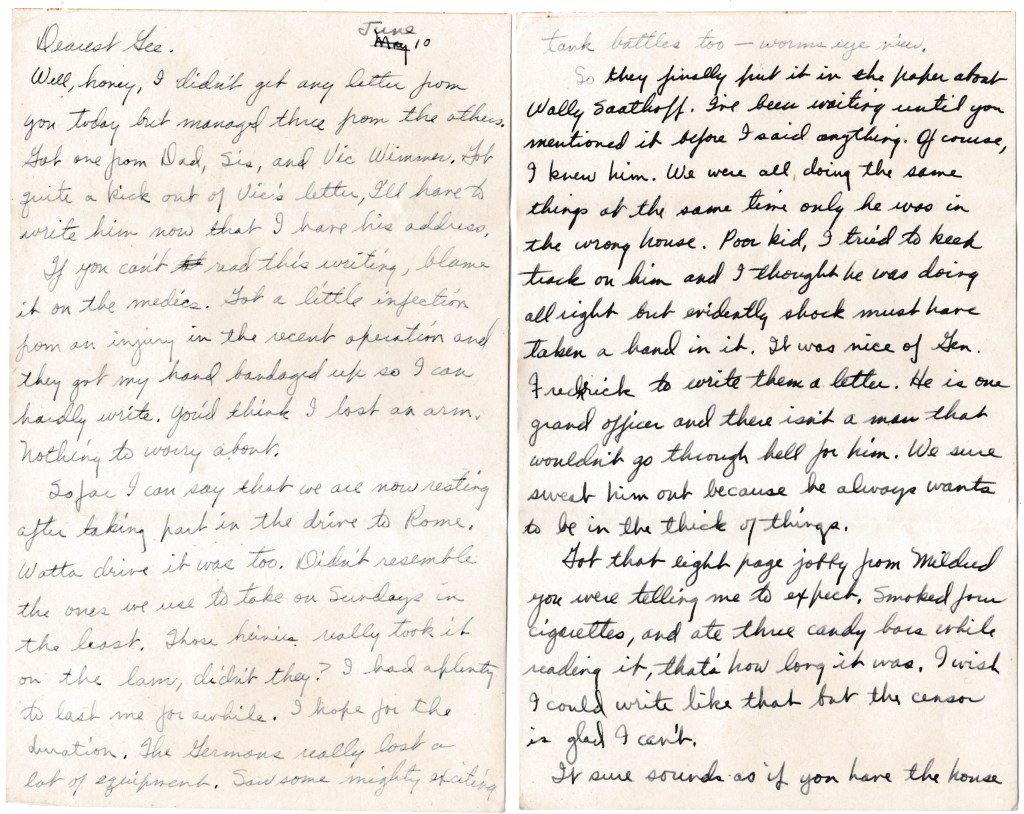 Dearest Gee.
June
May 10
Well, honey, I didn't get any letter from
you today but managed three from the others.
Got one from Dad, Sis, and Vic Wimmer. Got
quite a kick out of Vic's letter, I'll have to
write him now that I have his address.
If you can't read this writing, blame
it on the medics. Got a little infection
from an injury in the recent operation and
they got my hand bandaged up so I can
hardly write. You'd think I lost an arm.
Nothing to worry about.
So far I can say that we are now resting
after taking part in the drive to Rome.
Watta drive it was too. Didn't resemble
the ones we use to take on Sundays in
the least. Those heinies really took it
on the lam, didn't they? I had aplenty
to last me for awhile. I hope for the
duration. The Germans really lost a
lot of equipment. Saw some mighty exciting
tank battles too – worms eye view.
So they finally put it in the paper about
Wally Saathoff. I've been waiting until you
mentioned it before I said anything. Of course,
I knew him. We were all doing the same
things at the same time only he was in
the wrong house. Poor kid, I tried to keek
track on him and I thought he was doing
all right but evidently shock must have
taken a hand in it. It was nice of Gen.
Fredrick to write them a letter. He is one
grand officer and there isn't a man that
wouldn't go through hell for him. We sure
sweat him out because he always wants
to be in the thick of things.
Got that eight page jobby from Mildred
you were telling me to expect. Smoked four
cigarettes, and ate three candy bars while
reading it, that's how long it was. I wish
I could write like that but the censor
is glad I can't.
It sure sounds as if you have the house